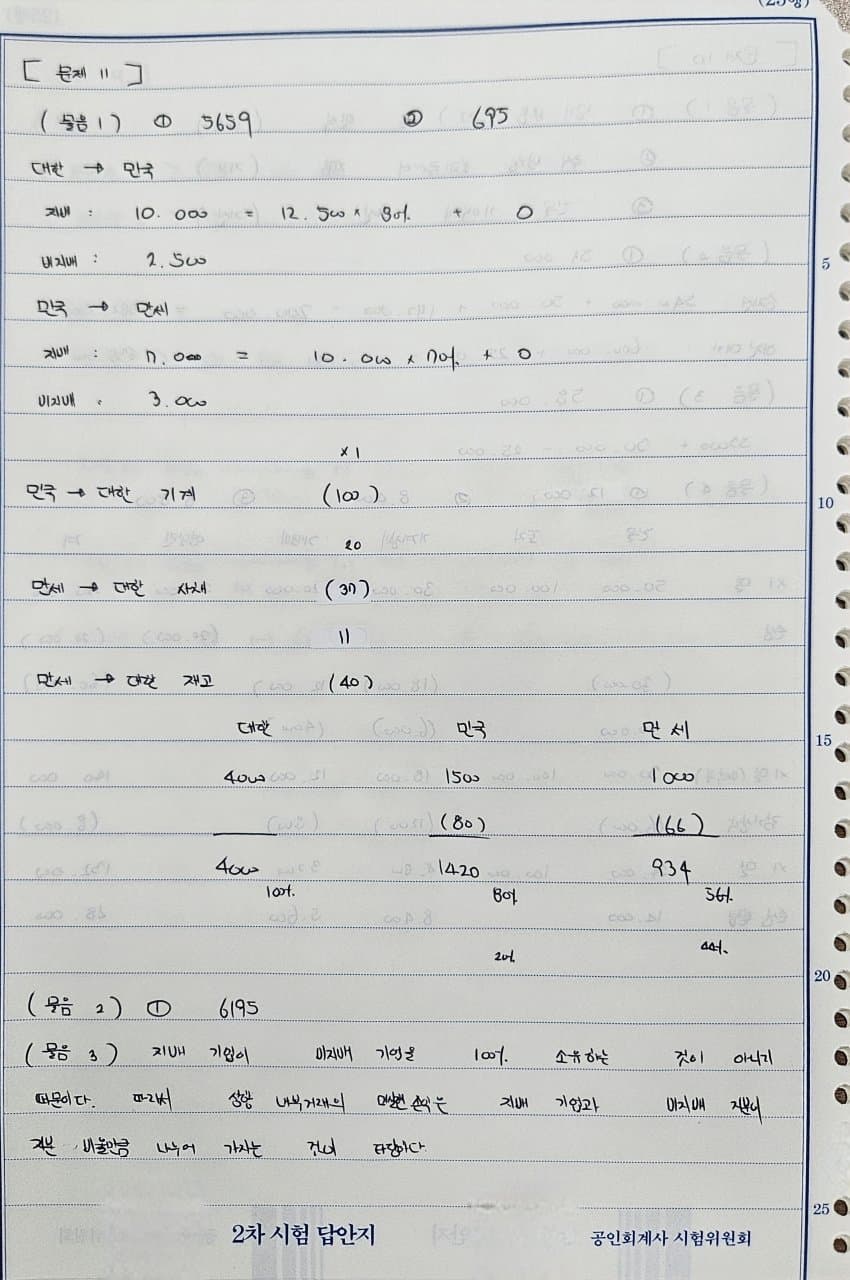 [ 문제 11 ]
(물음 1) ① 5659 ② 695
대한 → 민국
지배 : 10.000 = 12.500 × 80% + 0
비지배 : 2.500
민국 → 만세
지배 : 7.000 = 10.000 × 70% + 0
비지배 : 3.000
×1
민국 → 대한 기계 (100)
20
만세 → 대한 사채 (37)
11
만세 → 대한 재고 (40)
대한 민국 만세
4000 1500 1000
(80) (66)
4000 1420 934
100% 80% 56%
20% 44%
(물음 2) ① 6195
(물음 3) 지배 기업이 비지배 기업을 100% 소유하는 것이 아니기
때문이다. 따라서 상향 내부거래의 미실현 손익은 지배 기업과 비지배 지분이
지분 비율만큼 나누어 가지는 것이 타당하다.
5
10
15
20
25
2차 시험 답안지
공인회계사 시험위원회